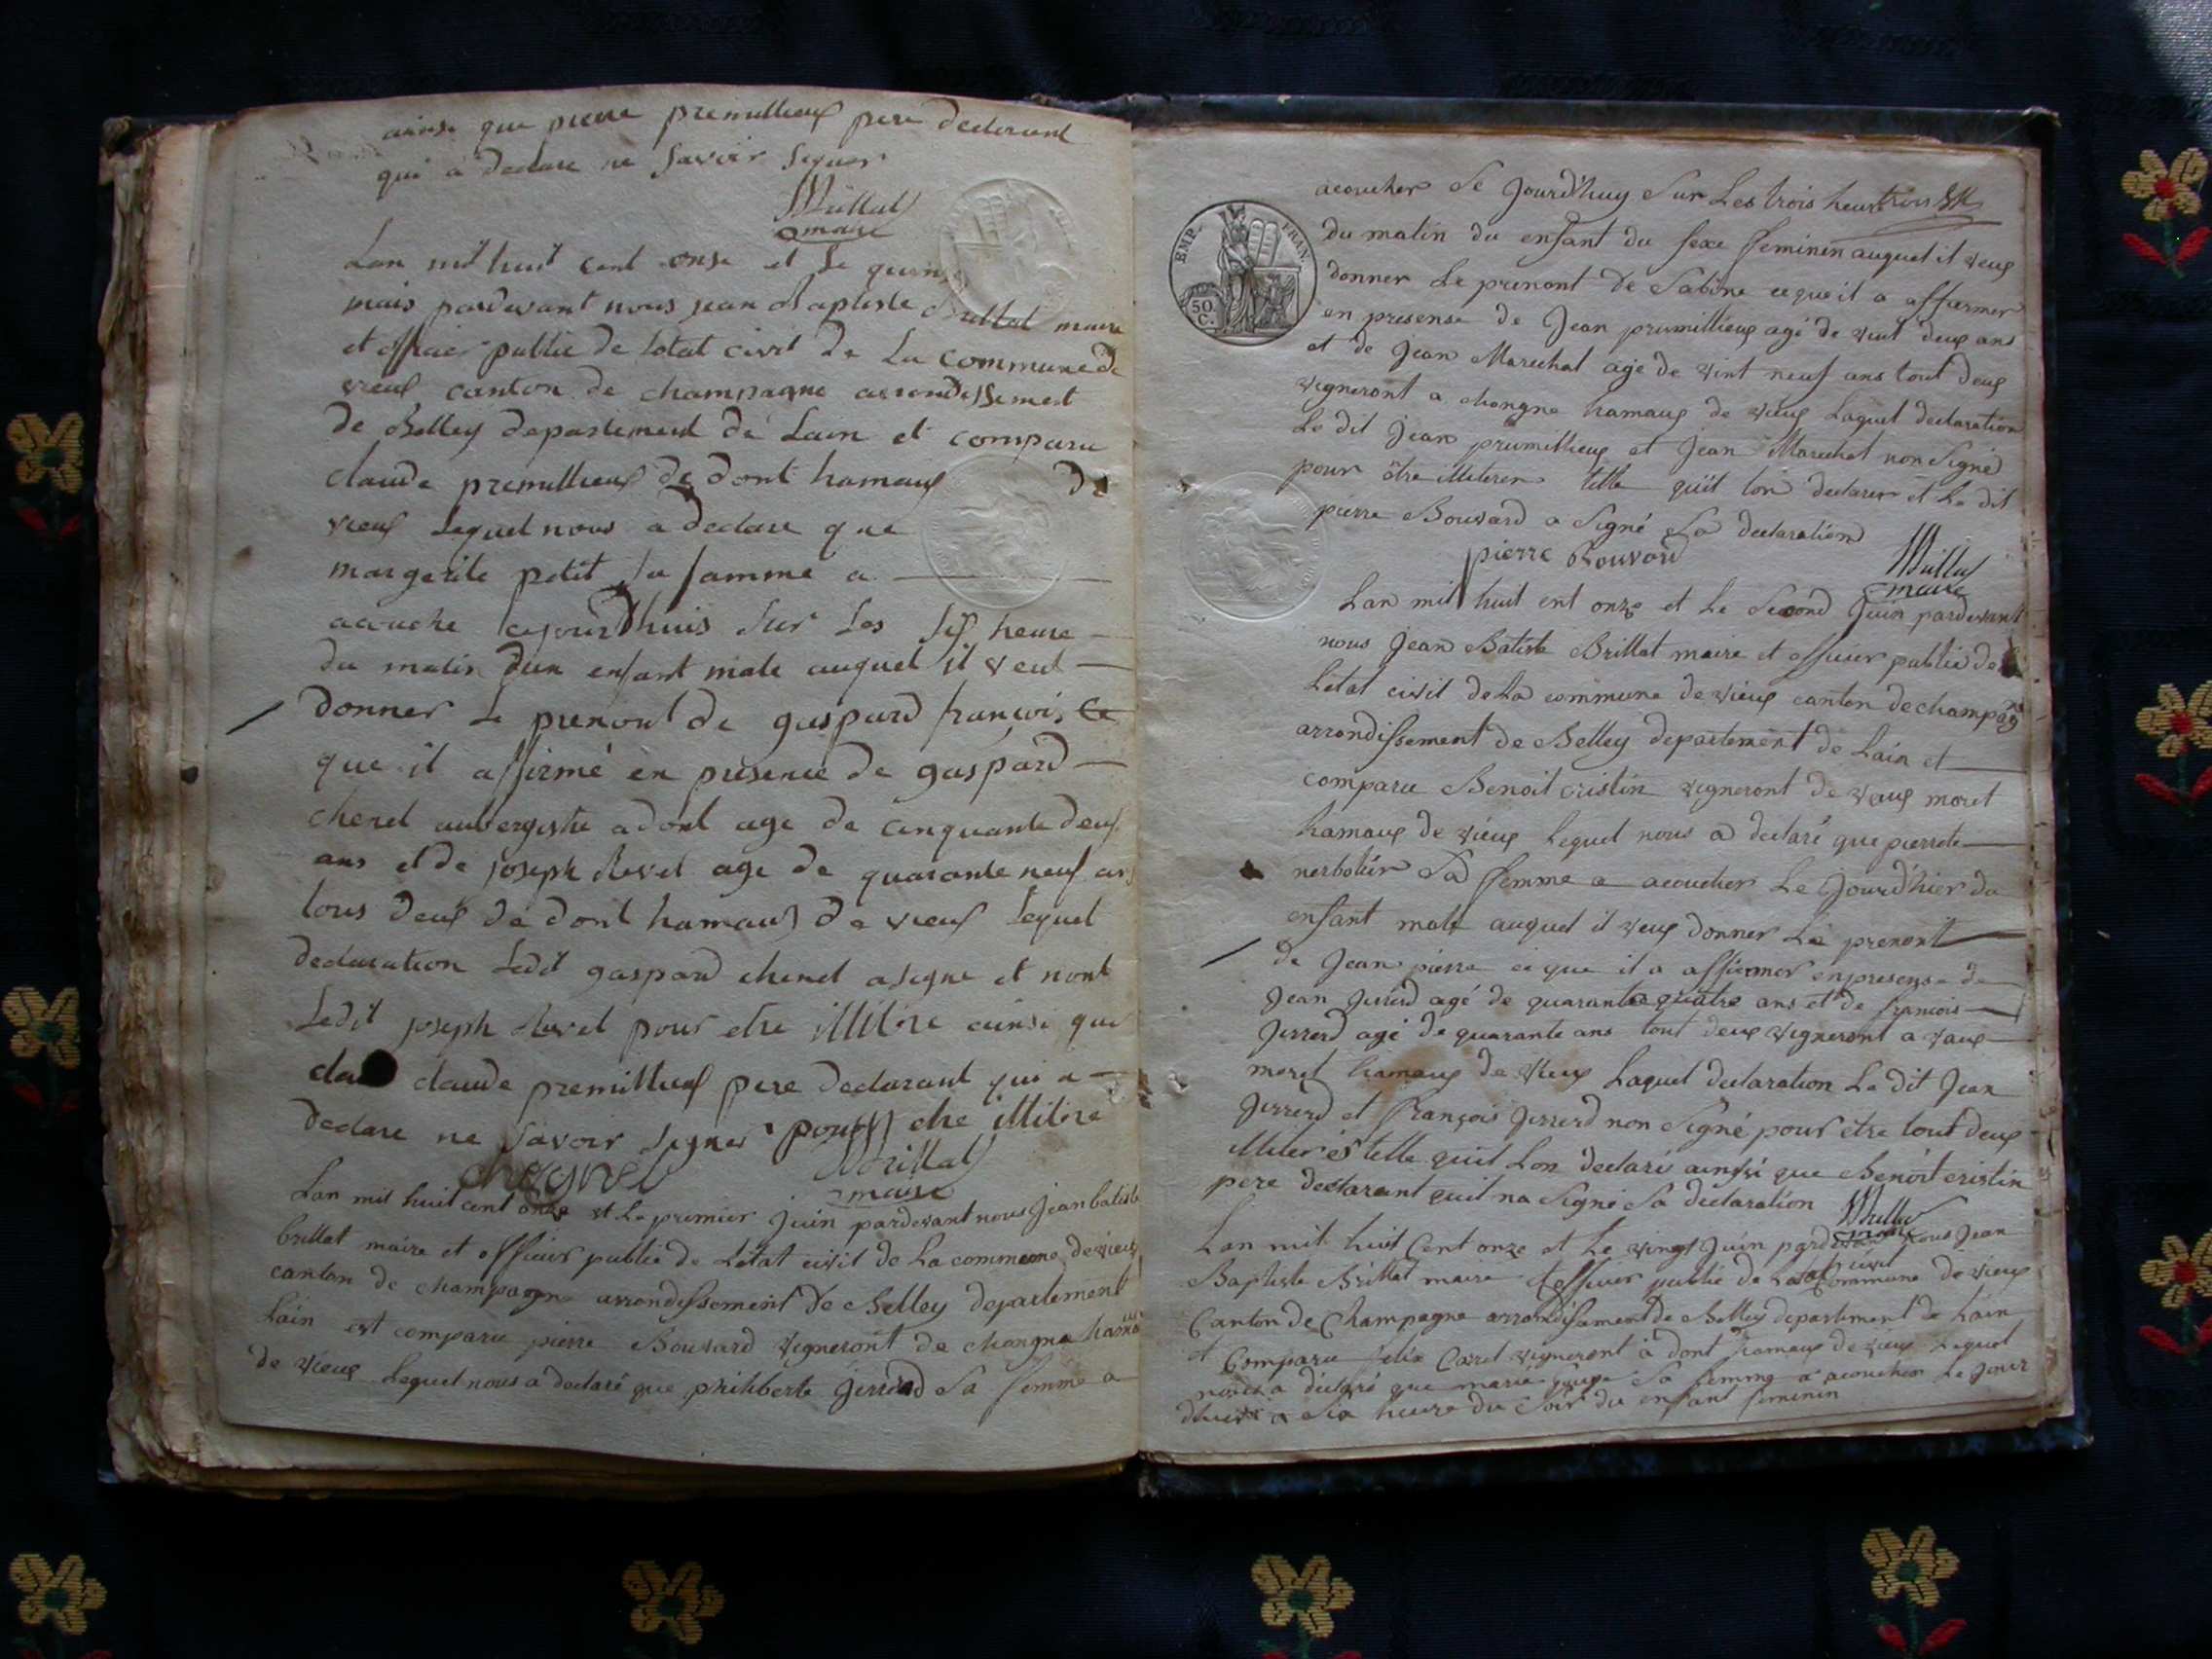 ainsi que pierre premillieux pere declarant
qui a declare ne savoir signer
Brillat
maire
Lan mil huit cent onse et le quinse
mais pardevant nous jean Baptiste Brillat maire
et officier public de letat civil de la commune de
vieux canton de champagne arrondissement
de Belley departement de Lain et comparu
claude premillieux de dont hamaux de
vieux lequel nous a declare que
margerite petit sa famme a
acouche cejourdhuis sur les six heure
du matin dun enfant male auquel il veut
donner le prenont de gaspard françois ce
que il affirmé en presence de gaspard
chenel aubergiste a dont age de cinquante deux
ans et de joseph Revel age de quarante neuf ans
tous deux de dont hamaux de vieux lequel
declaration ledit gaspard chenel a signe et nont
ledit joseph Revel pour etre illitere ainsi que
claude premillieux pere declarant qui a
declare ne savoir signer pour etre illitere
Brillat
maire
Lan mil huit cent onze et le premier Juin pardevant nous Jean batiste
brillat maire et officier public de L'état civil de la commune de vieux
canton de champagne arrondissement de Belley departement
Lain est comparu pierre Bouvard vigneront de chongne hamaux
de vieux Lequel nous a declaré que philiberte Jerrerd sa femme a
acoucher Se Jourd'huy Sur Les trois heure
EMP. FRAN.
50 C.
du matin du enfant du sexe feminin auquel il veux
donner Le prenont de Sabine ce que il a affirmer
en presense de Jean prumillieux agé de vint deux ans
et de Jean Marechal age de vint neuf ans tout deux
vigneront a chongne hamaux de vieux Laquel declaration
Le dit Jean prumillieux et Jean Marechal non Signé
pour être illiteren telle quit lon declarer et Le dit
pierre Bouvard a Signé Sa declaration
pierre Bouvard
Brillat
maire
Lan mil huit ent onze et Le Second Juin pardevant
nous Jean Batiste Brillat maire et officier public de
L'état civil de La commune de vieux canton de champagne
arrondissement de Belley departement de Lain et
comparu Benoit cristin vigneront de vaux moret
hamaux de vieux Lequel nous a declaré que pierrete
nerbolier Sa femme a acoucher Le Jourd'hier du
enfant male auquel il veux donner Le prenont
de Jean pierre ce que il a affirmer en presense de
Jean Jererd agé de quarante quatre ans et de francois
Jererd agé de quarante ans tout deux vigneront a vaux
moret hamaux de vieux Laquel declaration Le dit Jean
Jererd et François Jererd non Signé pour étre tout deux
illiterés telle quil Lon declaré ainsi que Benoit cristin
pere declarant quil na Signé Sa declaration
Brillat
maire
Lan mil huit Cent onze et Le vingt Juin pardevant nous Jean
Baptiste Brillat maire et officier public de Letat civil Commune de vieux
Canton de Champagne arrondissament de Belley departement de Lain
et Comparu felix Carrel vigneront à dont hamaux de vieux Lequel
nous a déclaré que marie sa femme a acoucher Le Jour
dhuis a six heure du Soir du enfant feminin